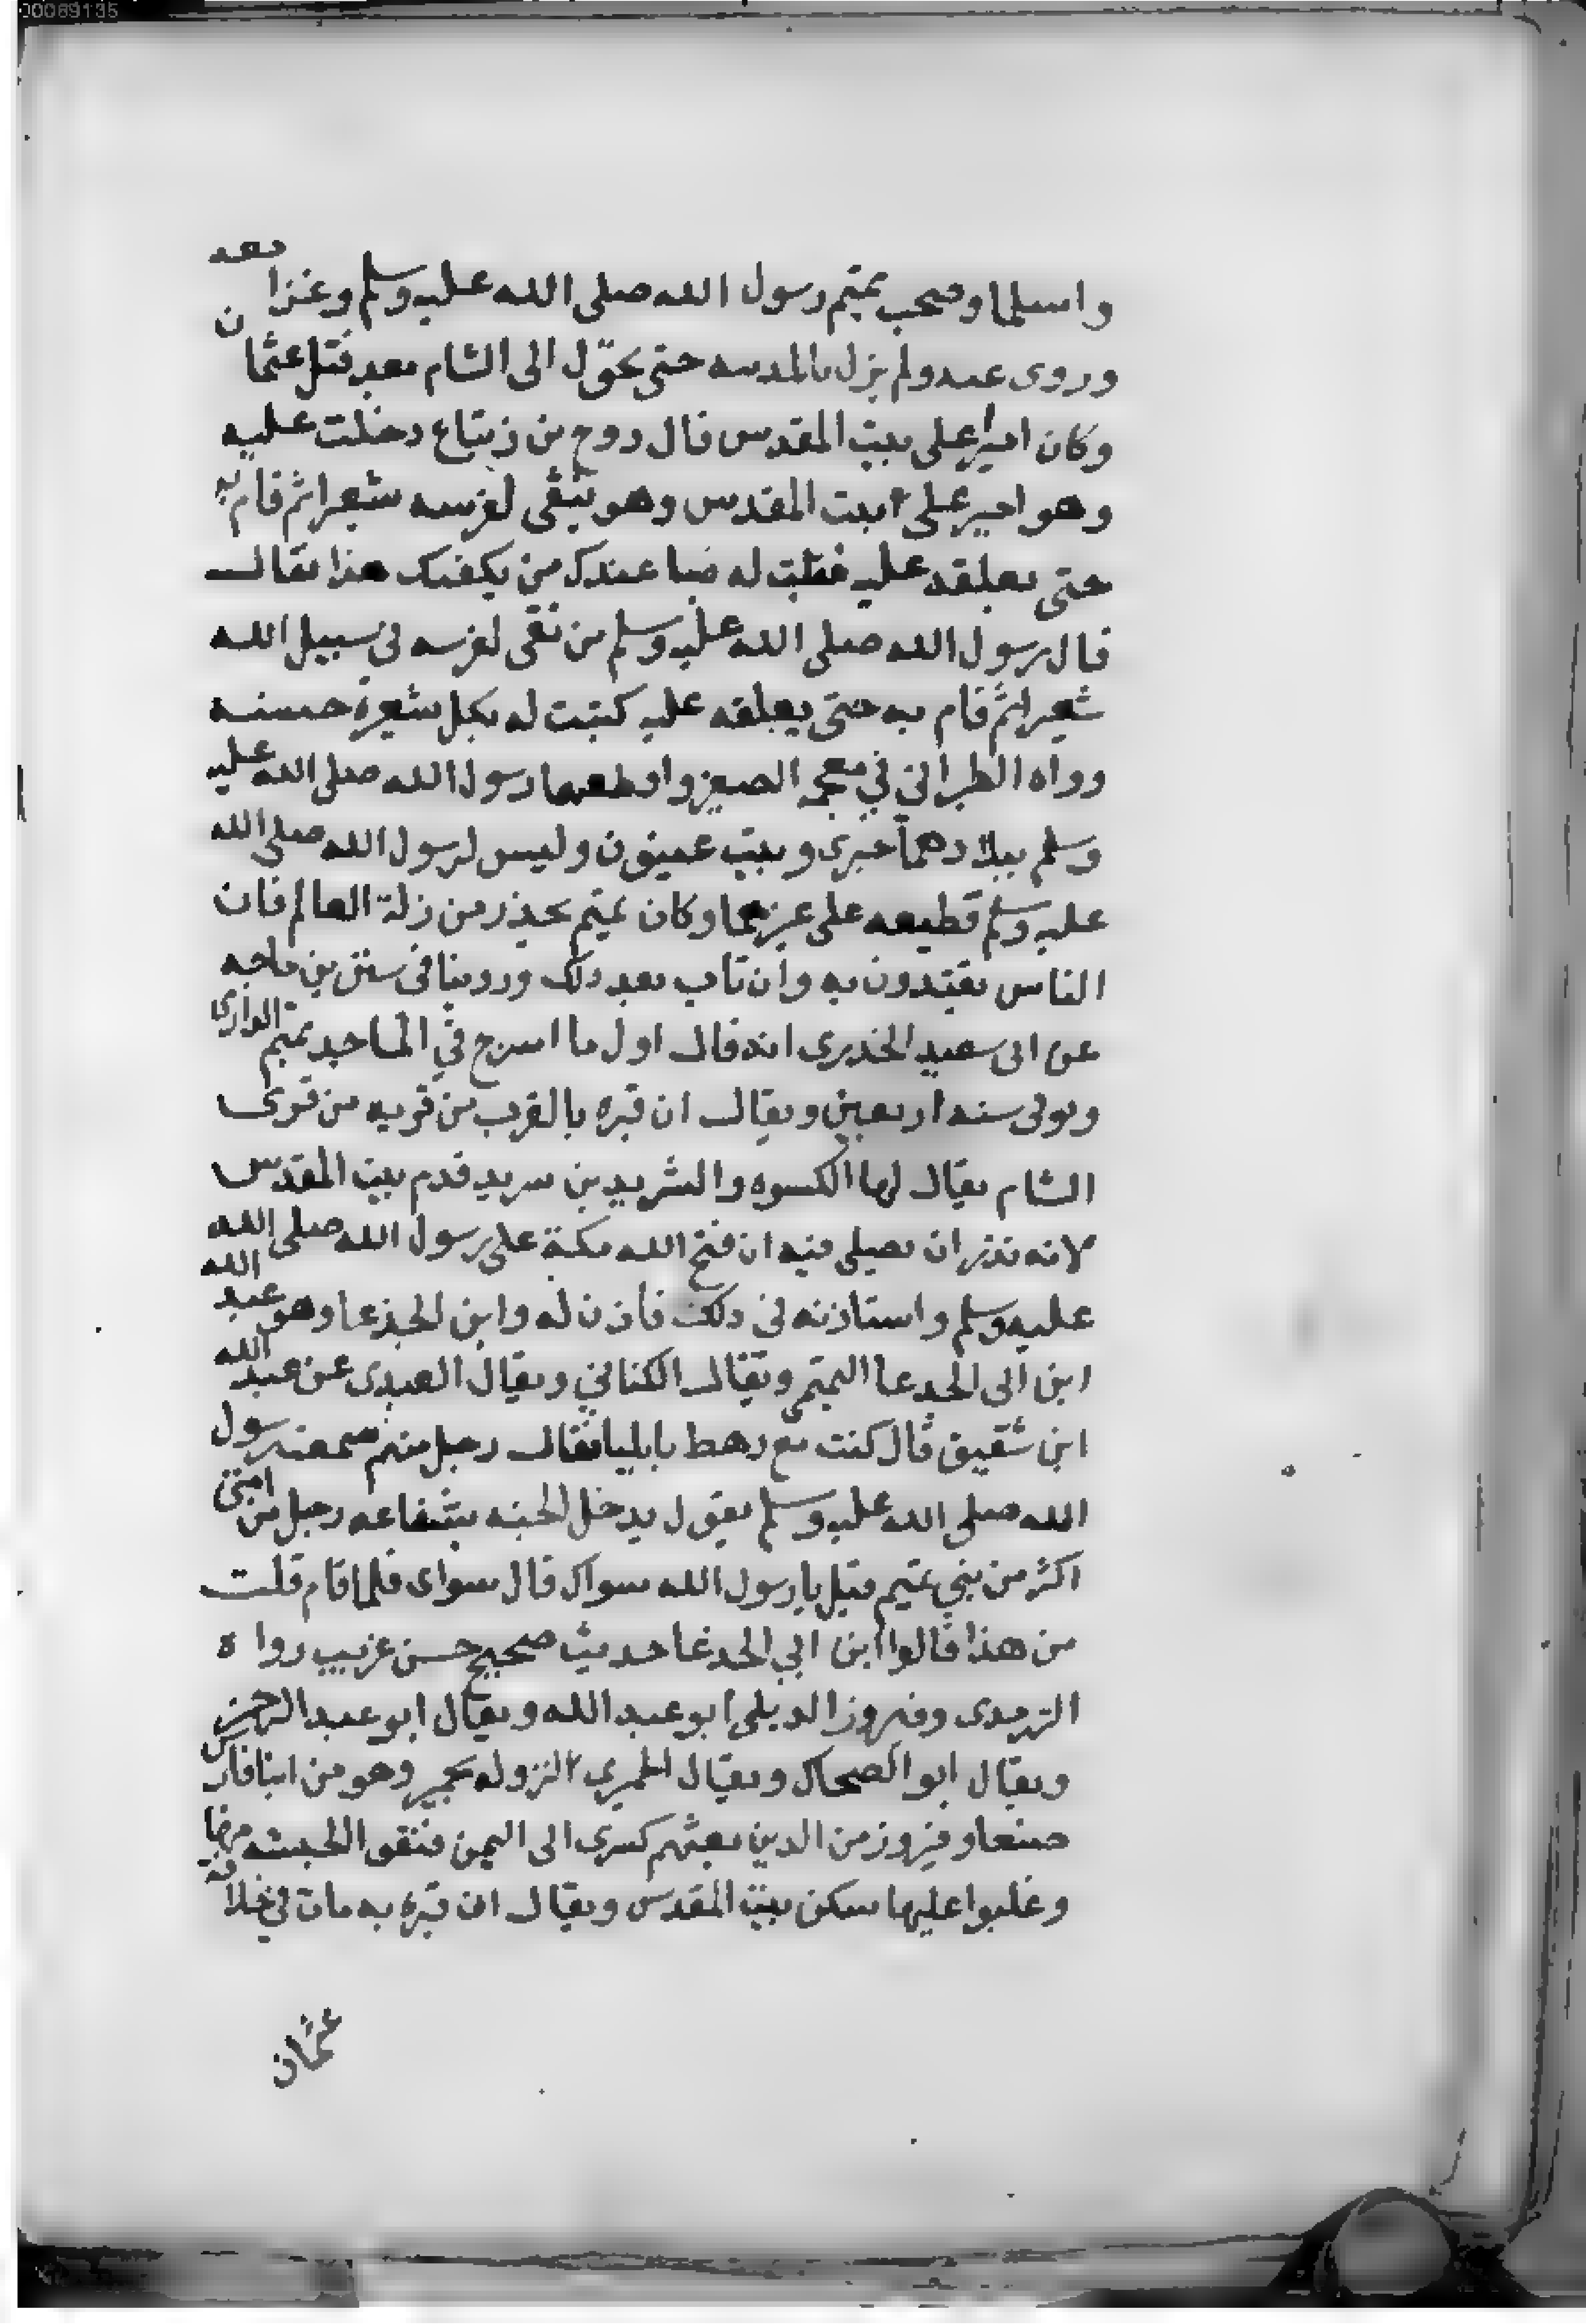 00089135
واسلما وصحب تميم رسول الله صلى الله عليه وسلم وغزا معه
وروى عنه ولم يزل بالمدينه حتى تحوّل الى الشام بعد قتل عثمان
وكان اميرا على بيت المقدس قال روح بن زنباع دخلت عليه
وهو امير على بيت المقدس وهو ينقى لفرسه شعيرا ثم قام به
حتى يعلقه عليه فقلت له ما عندك من يكفيك هذا فقال
قال رسول الله صلى الله عليه وسلم من نقى لفرسه في سبيل الله
شعيرا ثم قام به حتى يعلقه عليه كتبت له بكل شعيرة حسنه
ورواه الطبراني في معجمه الصغير واقطعهما رسول الله صلى الله عليه
وسلم ببلادهما حبرى وبيت عينون وليس لرسول الله صلى الله
عليه وسلم قطيعه على غيرهما وكان تميم يحذر من زلة العالم فان
الناس يقتدون به وان تاب بعد ذلك وروينا في سنن بن ماجه
عن ابى سعيد الخدرى انه قال اول ما اسرج في المساجد تميم الدارى
وتوفى سنه اربعين ويقال ان قبره بالقرب من قريه من قرى
الشام يقال لها الكسوه والشريد بن سويد قدم بيت المقدس
لانه نذر ان يصلى فيه ان فتح الله مكة على رسول الله صلى الله
عليه وسلم واستاذنه في ذلك فأذن له وابن الجذعا وهو عبد الله
ابن ابى الجدعا التميمي ويقال الكناني ويقال العبدى عن عبد الله
ابن شقيق قال كنت مع رهط بايليا فقال رجل منهم سمعت رسول
الله صلى الله عليه وسلم يقول يدخل الجنه بشفاعه رجل من امتى
اكثر من بني تميم قيل يا رسول الله سواك قال سواى فلما قام قلت
من هذا قالوا ابن ابي الجدعا حديث صحيح حسن غريب رواه
الترمدى وفيروز الديلمي ابو عبد الله ويقال ابو عبد الرحمن
ويقال ابو الضحاك ويقال الحميري لنزوله بحمير وهو من ابنا فارس
صنعا وفيروز من الدين بعثهم كسرى الى اليمن فنفوا الحبشه منها
وغلبوا عليها سكن بيت المقدس ويقال ان قبره به مات في خلافة
عثمان